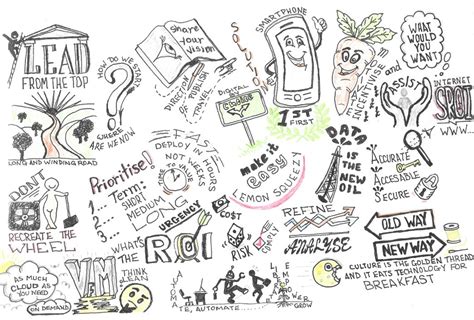 LEAD
FROM THE TOP
LONG AND WINDING ROAD
HOW DO WE START
?
WHERE
ARE WE NOW
share
your
vision
DIRECTION
PUBLISH
SOLUTIONS
DIGITAL
CLOUDS
SMARTPHONE
1ST
FIRST
INCENTIVISE
WHAT
WOULD
YOU
WANT!
ASSIST
INTERNET
SPOT
WWW...
DON'T
RECREATE THE
WHEEL
Prioritise!
1. Term:
2. SHORT
3. MEDIUM
LONG
FAST
DEPLOY IN HOURS
NOT WEEKS
make it
easy
LEMON SQUEEZY
DATA
IS THE
NEW
OIL
ACCURATE
ACCESABLE
SECURE
AS MUCH
CLOUD AS
YOU NEED
ON DEMAND
VM
THINK
LEAN
WHAT'S
THE
ROI
URGENCY
CO$T
RISK
COMPLY
REFINE
ANALYSE
OLD WAY
NEW WAY
AUTOMATE
GROW
CULTURE IS THE GOLDEN THREAD
AND IT EATS TECHNOLOGY FOR
BREAKFAST